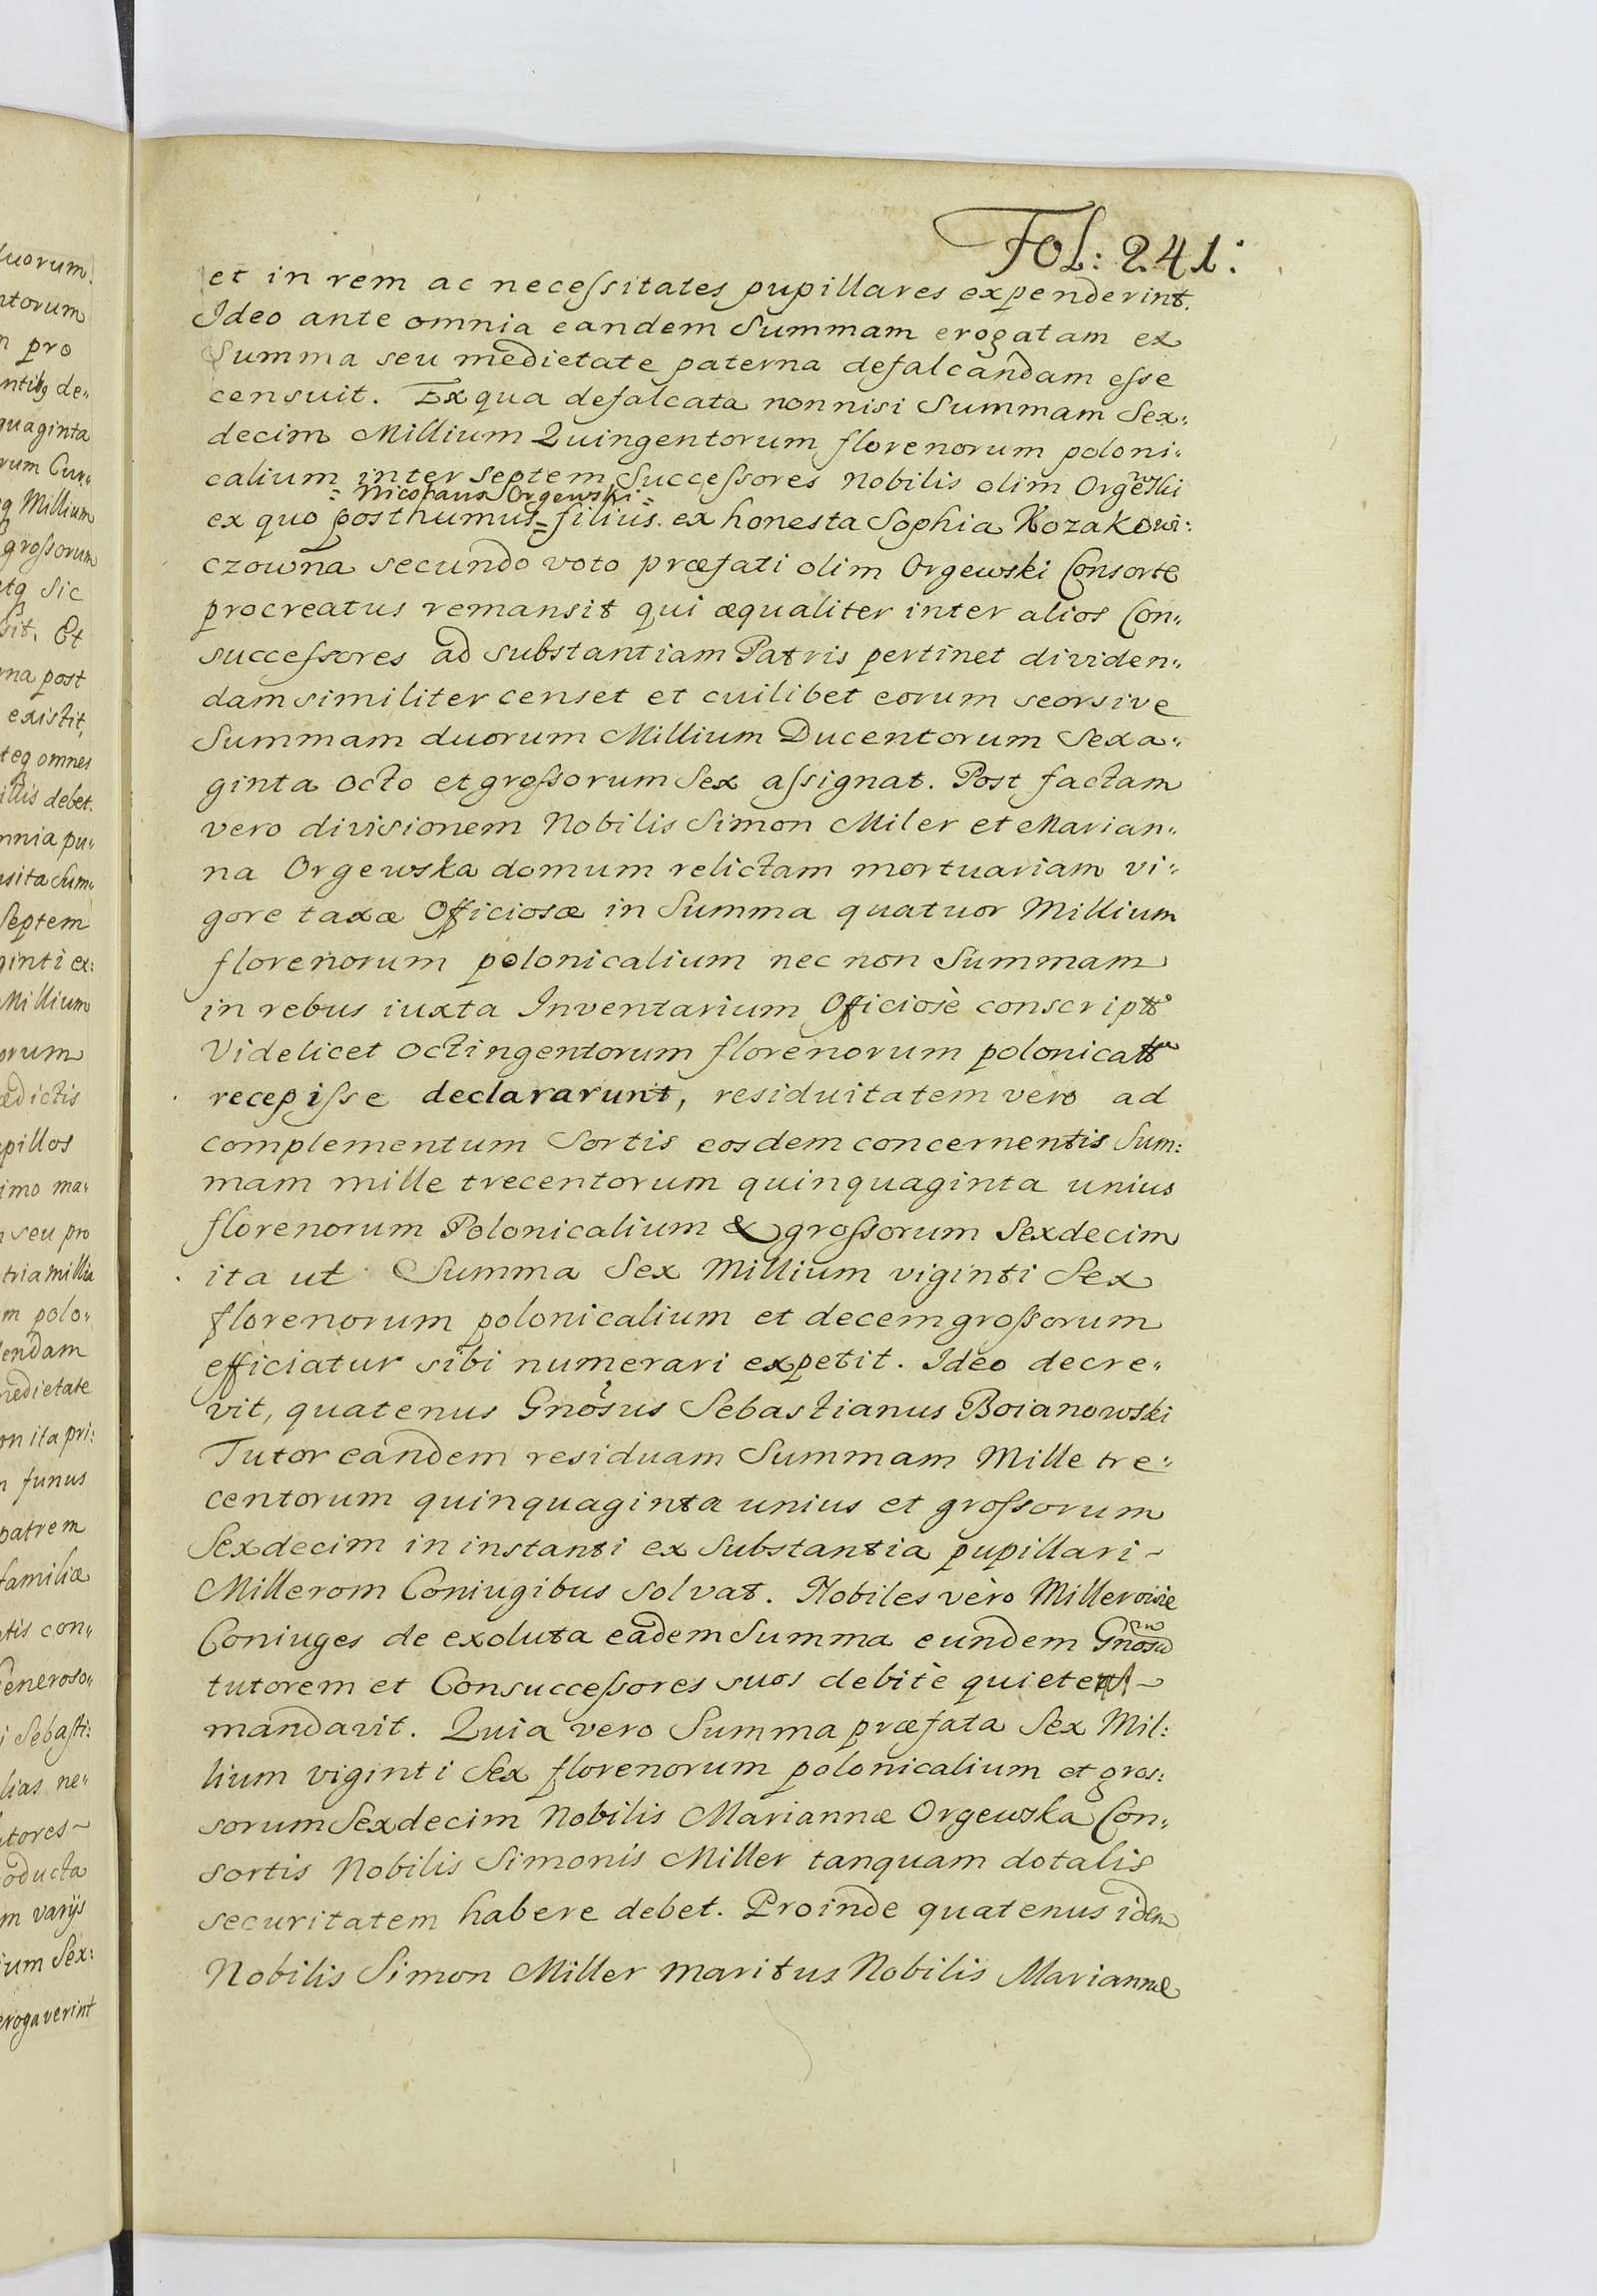 luorum
ntorum
n pro
ntibq de„
quaginta
rum Cur„
q Millium
groſsorum
tq Sic
sit. Et
rna post
existit,
teq omnes
illis debet.
mnia pu„
sita Sum„
Septem
ginti ex:
Millium
orum
ædictis
pillos
imo ma„
n seu pro
tria millia
m polo„
endam
medietate
on ita pri:
n funus
patrem
familiæ
tis con„
Generoso„
i Sebasti:
lias ne„
tores~
oducta
m varijs
ium Sex:
erogaverint
Fol: 241:
et in rem ac neceſsitates pupillares expenderint.
Ideo ante omnia eandem Summam erogatam ex
Summa seu medietate paterna defalcandam eſse
censuit. Ex qua defalcata nonnisi Summam Sex:
decim Millium Quingentorum florenorum poloni„
calium inter Septem Succeſsores Nobilis olim Orgewski
= Nicolaus Orgewski =
ex quo posthumus = filius. ex honesta Sophia Kozakowi:
czowna secundo voto præfati olim Orgewski Consorte
procreatus remansit qui æqualiter inter alios Con„
succeſsores ad substantiam Patris pertinet dividen„
dam similiter censet et cuilibet eorum seorsive
Summam duorum Millium Ducentorum Sexa„
ginta octo et groſsorum Sex aſsignat. Post factam
vero divisionem Nobilis Simon Miler et Marian„
na Orgewska domum relictam mortuariam vi„
gore taxæ Officiosæ in Summa quatuor Millium
florenorum polonicalium nec non Summam
in rebus iuxta Inventarium Officiosè conscript͠
Videlicet octingentorum florenorum polonical͠
recepiſse declararunt, residuitatem vero ad
complementum Sortis eosdem concernentis Sum:
mam mille trecentorum quinquaginta unius
florenorum Polonicalium & groſsorum Sexdecim
ita ut Summa Sex Millium viginti Sex
florenorum polonicalium et decem groſsorum
efficiatur sibi numerari expetit. Ideo decre„
vit, quatenus Gnosus Sebastianus Boianowski
Tutor eandem residuam Summam Mille tre„
centorum quinquaginta unius et groſsorum
Sexdecim in instanti ex Substantia pupillari ~
Millerom Coniugibus solvat. Nobiles vero Millerowie
Coniuges de exoluta eadem Summa eundem Gnosu͠
tutorem et Consucceſsores suos debitè quietent ~
mandavit. Quia vero Summa præfata Sex Mil:
lium viginti Sex florenorum polonicalium et gros:
sorum Sexdecim Nobilis Mariannæ Orgewska Con„
sortis Nobilis Simonis Miller tanquam dotalis
securitatem habere debet. Proinde quatenus idem
Nobilis Simon Miller maritus Nobilis Mariannæ